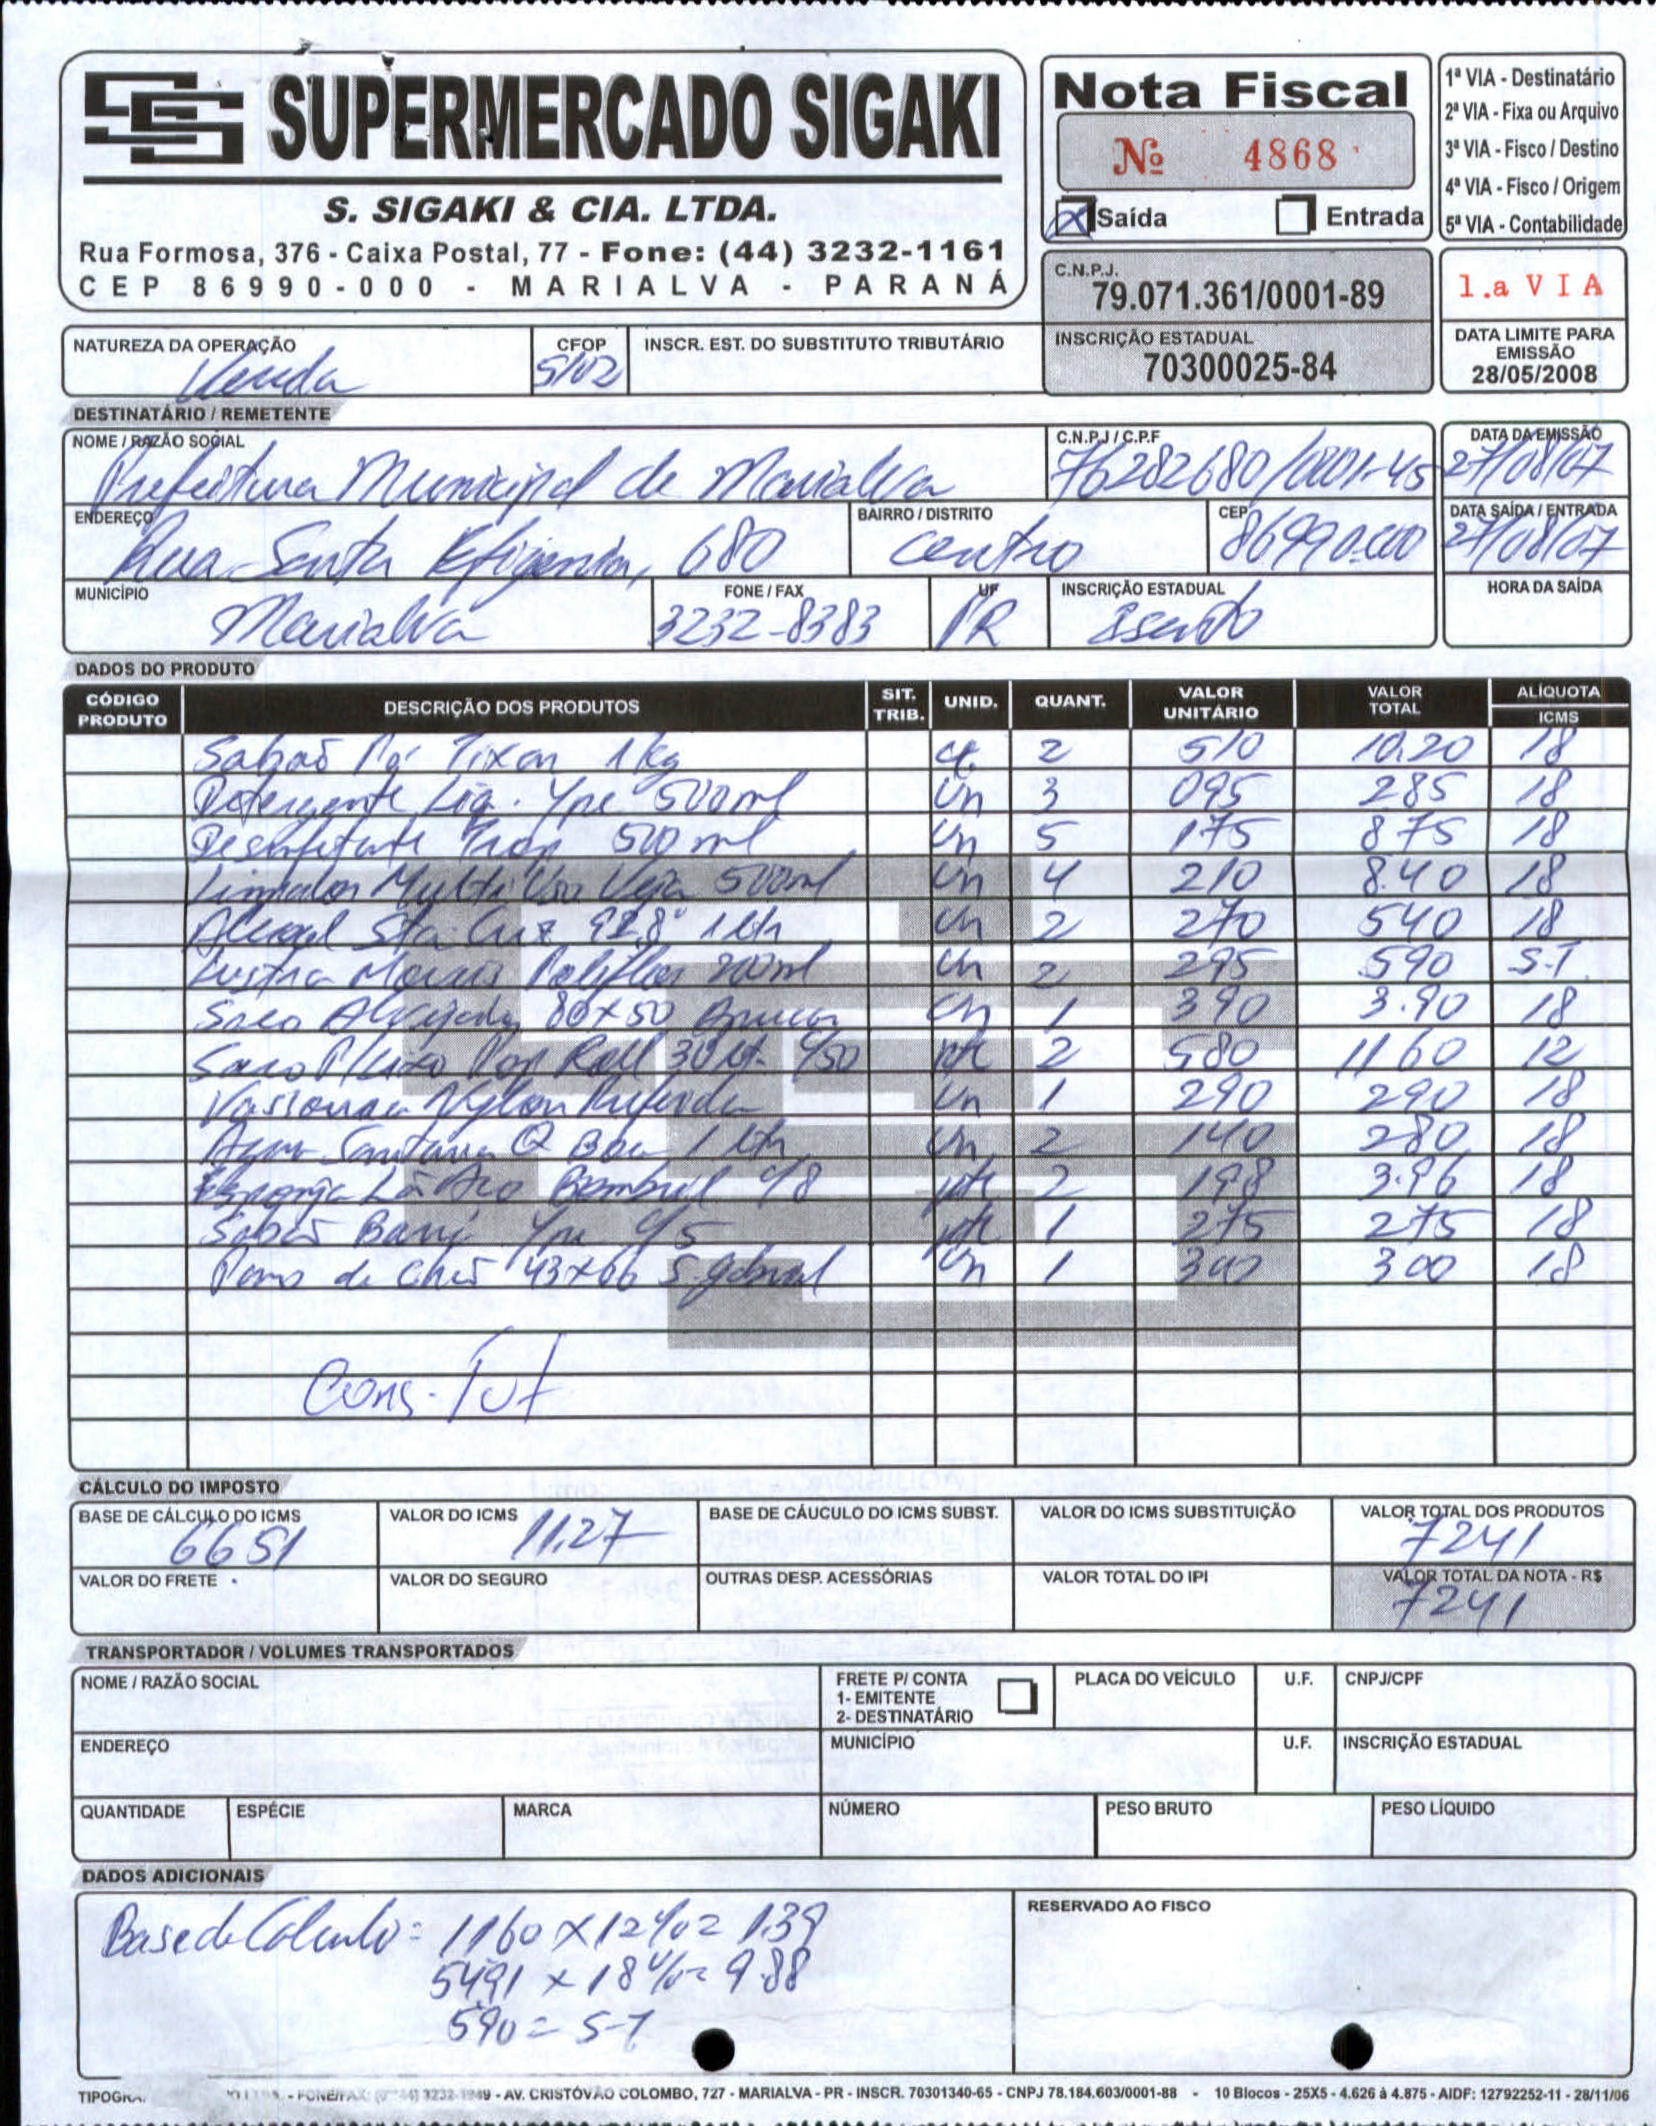 SUPERMERCADO SIGAKI
S. SIGAKI & CIA. LTDA.
Rua Formosa, 376 - Caixa Postal, 77 - Fone: (44) 3232-1161
CEP 86990-000 - MARIALVA - PARANÁ
Nota Fiscal
Nº 4868
X Saída Entrada
1ª VIA - Destinatário
2ª VIA - Fixa ou Arquivo
3ª VIA - Fisco / Destino
4ª VIA - Fisco / Origem
5ª VIA - Contabilidade
C.N.P.J.
79.071.361/0001-89
1.a VIA
INSCRIÇÃO ESTADUAL
70300025-84
DATA LIMITE PARA
EMISSÃO
28/05/2008
NATUREZA DA OPERAÇÃO CFOP INSCR. EST. DO SUBSTITUTO TRIBUTÁRIO
Venda 5102
DESTINATÁRIO / REMETENTE
NOME / RAZÃO SOCIAL C.N.P.J / C.P.F DATA DA EMISSÃO
Prefeitura Municipal de Marialva 76282680/0001-45 27/08/07
ENDEREÇO BAIRRO / DISTRITO CEP DATA SAÍDA / ENTRADA
Rua Santa Efigenia, 680 Centro 86990.000 27/08/07
MUNICÍPIO FONE / FAX UF INSCRIÇÃO ESTADUAL HORA DA SAÍDA
Marialva 3232-8383 PR Isento
DADOS DO PRODUTO
CÓDIGO PRODUTO DESCRIÇÃO DOS PRODUTOS SIT. TRIB. UNID. QUANT. VALOR UNITÁRIO VALOR TOTAL ALÍQUOTA ICMS
Sabão Pó Tixan 1kg 2 510 10.20 18
Detergente Liq. Ype 500ml Un 3 095 285 18
Desinfetante 500 ml Un 5 175 875 18
Limpador Multi Uso Veja 500ml Un 4 210 8.40 18
Alcool Sta Cruz 92,8° 1 Ltr Un 2 270 540 18
Lustra Moveis Poliflor 200ml Un 2 295 590 S.T.
Saco Alvejado 80x50 Un 1 390 3.90 18
Saco P/ Lixo Pop Roll 30 Lt. c/50 pte 2 580 1160 12
Vassoura Nylon Preferida Un 1 290 290 18
Agua Sanitaria Q Boa 1 Ltr Un 2 140 280 18
Esponja Lã Aço Bombril c/8 pte 2 198 3.96 18
Sabão Barra Ype c/5 pte 1 275 275 18
Pano de Chão 43x66 Un 1 300 300 18
Cons. Tut
CÁLCULO DO IMPOSTO
BASE DE CÁLCULO DO ICMS VALOR DO ICMS BASE DE CÁUCULO DO ICMS SUBST. VALOR DO ICMS SUBSTITUIÇÃO VALOR TOTAL DOS PRODUTOS
6651 11,27 7241
VALOR DO FRETE VALOR DO SEGURO OUTRAS DESP. ACESSÓRIAS VALOR TOTAL DO IPI VALOR TOTAL DA NOTA - R$
7241
TRANSPORTADOR / VOLUMES TRANSPORTADOS
NOME / RAZÃO SOCIAL FRETE P/ CONTA PLACA DO VEÍCULO U.F. CNPJ/CPF
1- EMITENTE
2- DESTINATÁRIO
ENDEREÇO MUNICÍPIO U.F. INSCRIÇÃO ESTADUAL
QUANTIDADE ESPÉCIE MARCA NÚMERO PESO BRUTO PESO LÍQUIDO
DADOS ADICIONAIS
RESERVADO AO FISCO
Base de Calculo = 1160 x 12% = 1.39
5491 x 18% = 9.88
590 = S-T
- FONE/FAX: 3232-1949 - AV. CRISTÓVÃO COLOMBO, 727 - MARIALVA - PR - INSCR. 70301340-65 - CNPJ 78.184.603/0001-88 - 10 Blocos - 25X5 - 4.626 à 4.875 - AIDF: 12792252-11 - 28/11/06